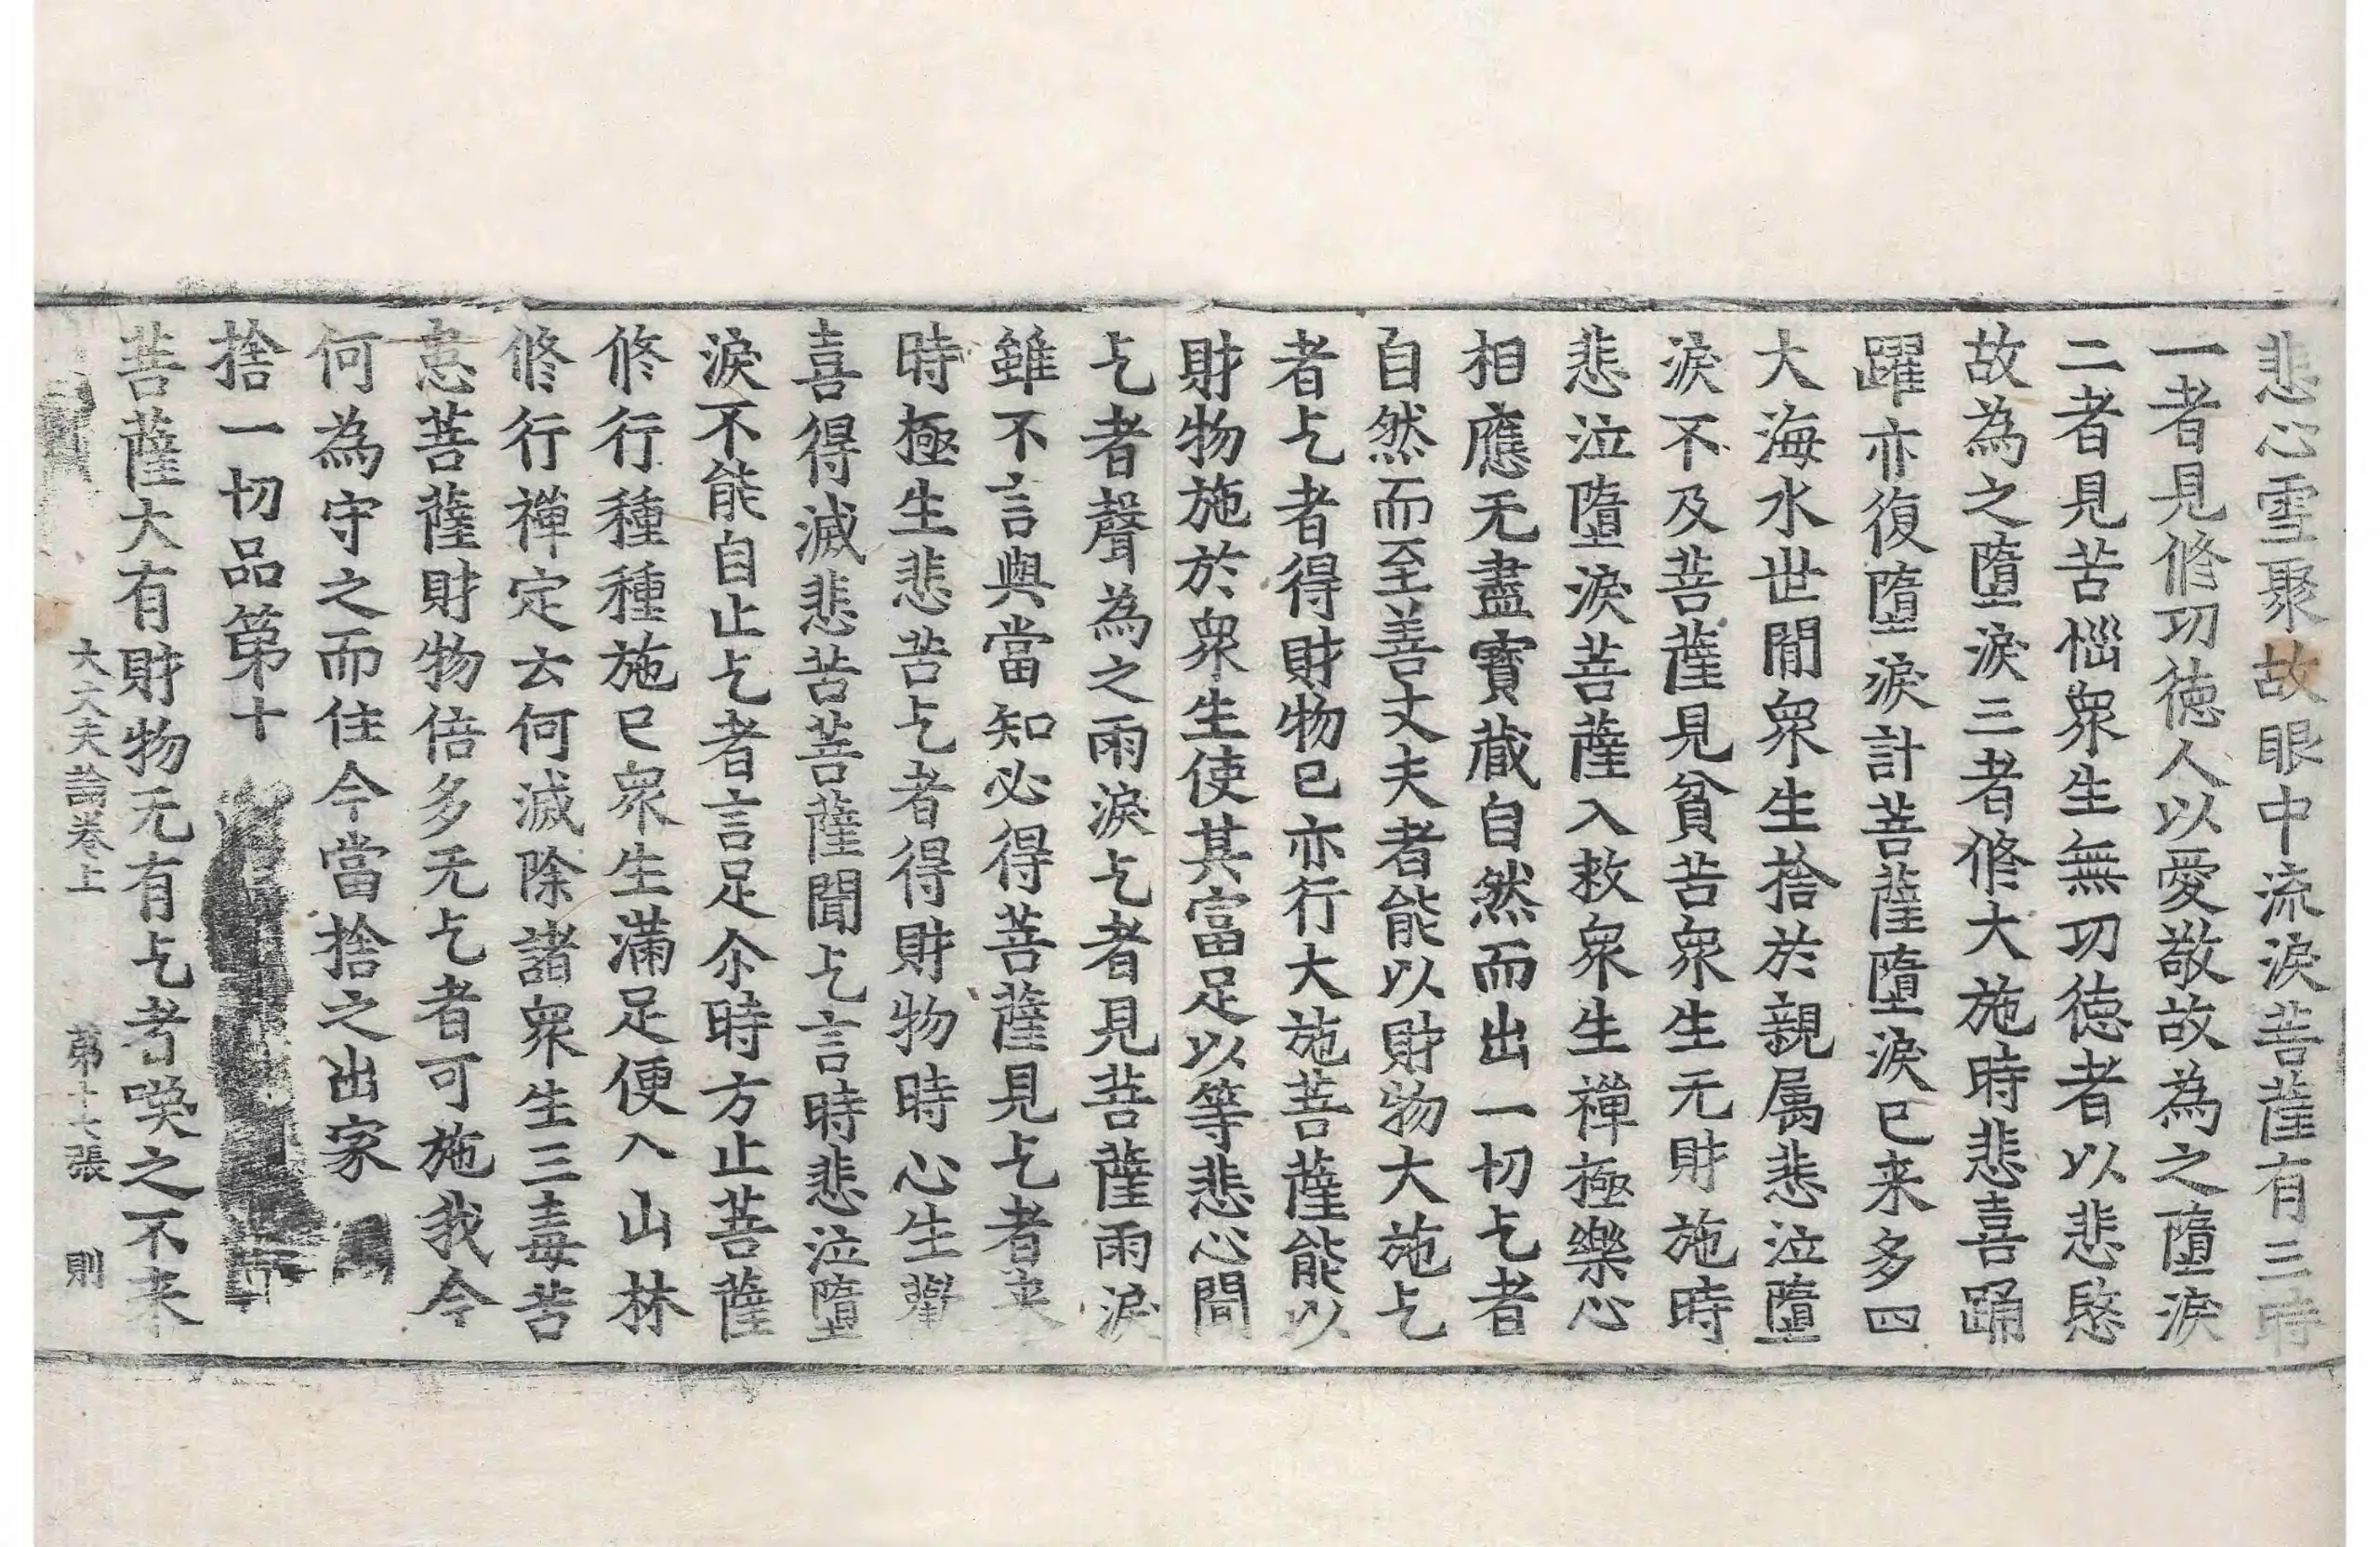 悲心雪聚故眼中流淚菩薩有三時
一者見修功徳人以愛敬故為之墮淚
二者見苦惱衆生無功徳者以悲愍
故為之墮淚三者修大施時悲喜踊
躍亦復墮淚計菩薩墮淚已来多四
大海水世間衆生捨於親属悲泣墮
淚不及菩薩見貧苦衆生无財施時
悲泣墮淚菩薩入救衆生禪極樂心
相應无盡寶蔵自然而出一切乞者
自然而至善丈夫者能以財物大施乞
者乞者得財物已亦行大施菩薩能以
財物施於衆生使其富足以等悲心間
乞者聲為之雨淚乞者見菩薩雨淚
雖不言與當知必得菩薩見乞者来
時極生悲苦乞者得財物時心生
喜得滅悲苦菩薩聞乞言時悲泣墮
淚不能自止乞者言足尒時方止菩薩
修行種種施已衆生滿足便入山林
修行禪定云何滅除諸衆生三毒苦
恚菩薩財物倍多无乞者可施我今
何為守之而住今當捨之出家
捨一切品第十
菩薩大有財物无有乞者喚之不来
大丈夫論卷上 第十七張 則